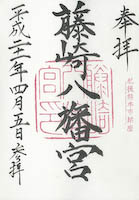 奉拝
肥後熊本市鎮座
藤崎八旛宮
平成二十一年四月五日参拝